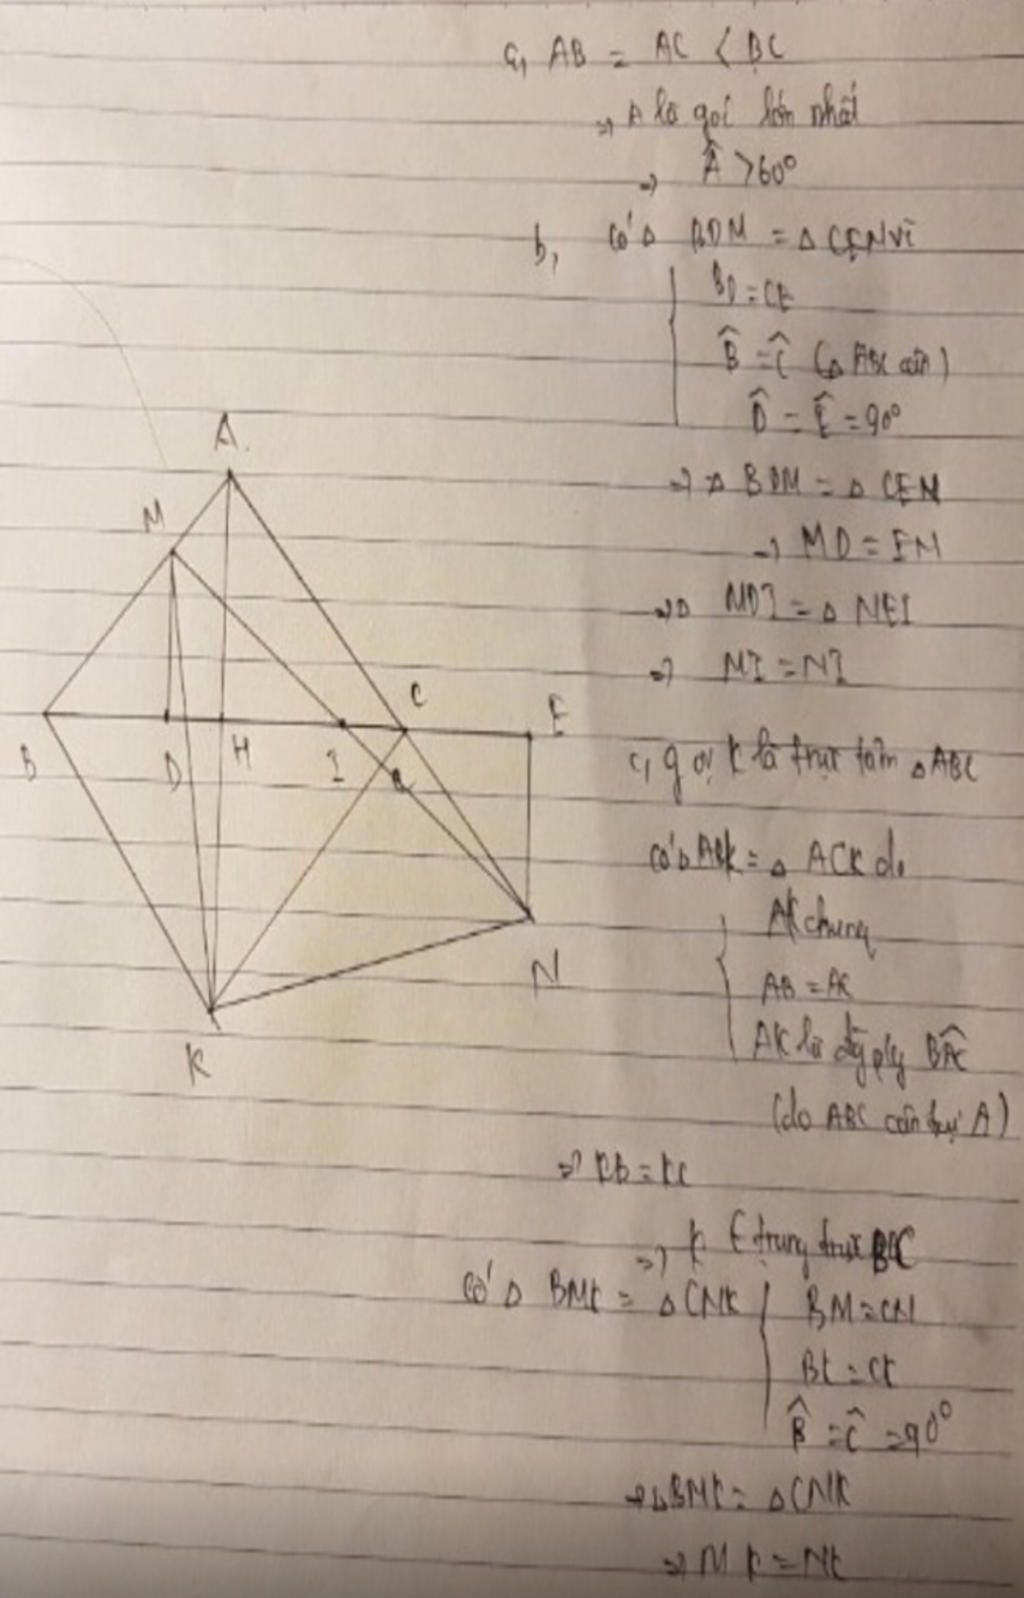 a, AB = AC < BC
=> A là góc lớn nhất
=> Â >60°
b, Có Δ BDM = Δ CEN vì
BD = CE
B̂ = Ĉ (Δ ABC cân)
D̂ = Ê = 90°
=> Δ BDM = Δ CEN
=> MD = EN
=> Δ MDI = Δ NEI
=> MI = NI
c, gọi K là trực tâm Δ ABC
có Δ ABK = Δ ACK do
AK chung
AB = AC
AK là đg p/g BÂC
(do ABC cân tại A)
=> KB = KC
=> K ∈ trung trực BC
Có Δ BMK = Δ CNK
BM = CN
BK = CK
B̂ = Ĉ = 90°
=> Δ BMK = Δ CNK
=> MK = NK
A
M
C
E
B
D
H
I
N
K